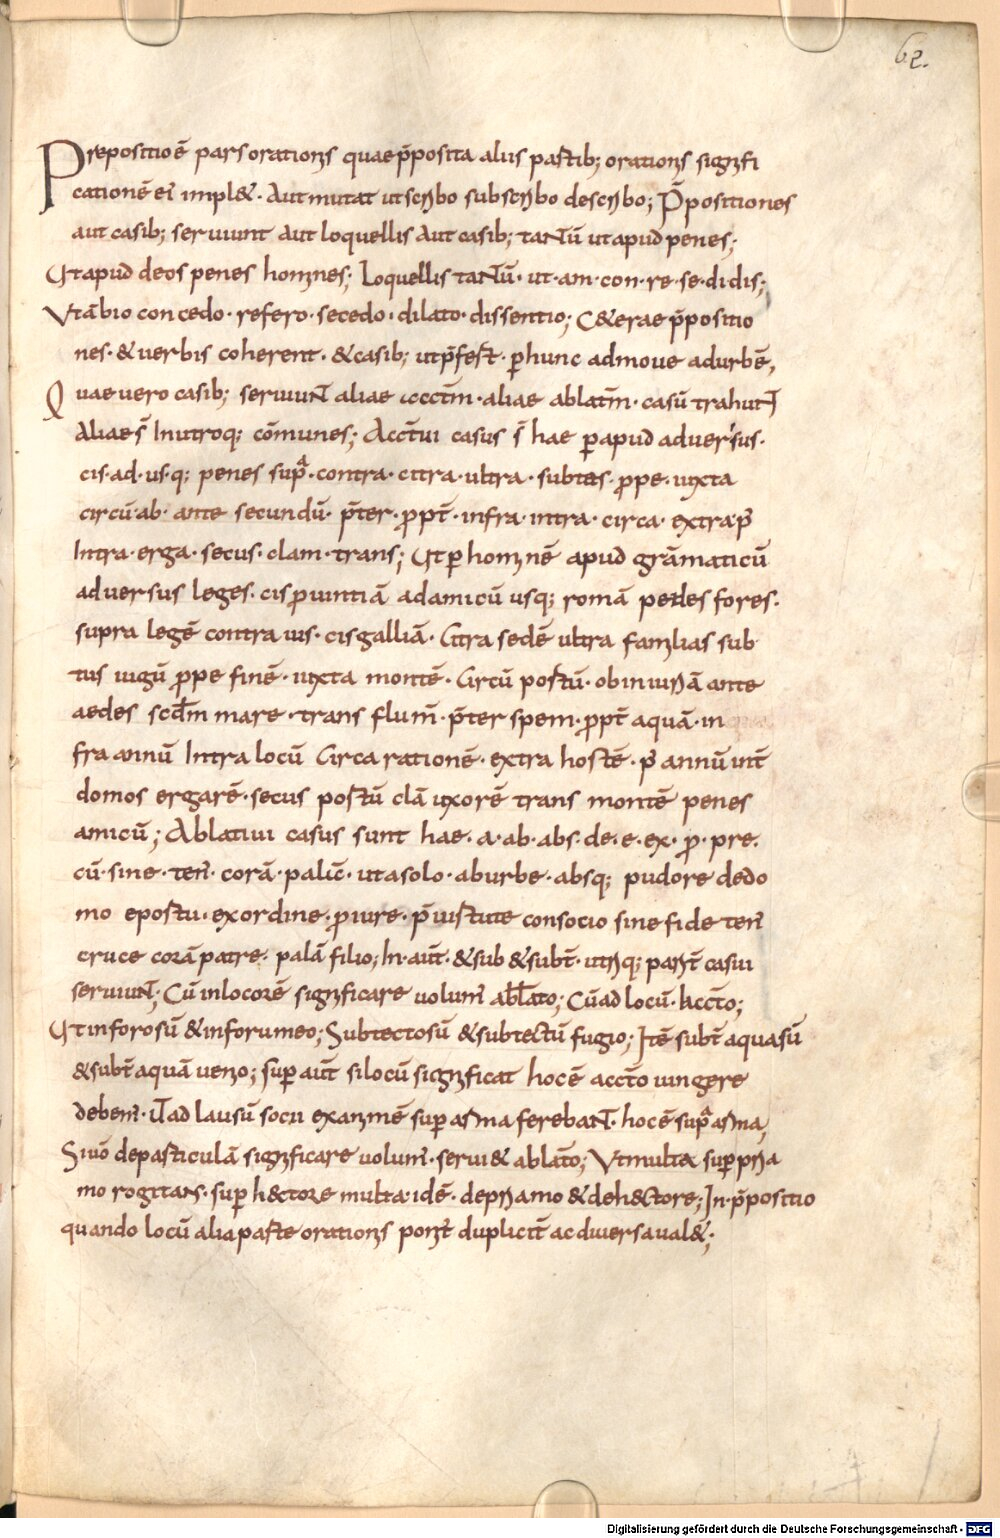 62.
Prepositio ē pars orationis quae p̄posita aliis partib; orationis signifi
cationē eī impl&. Aut mutat ut scribo subscribo describo; P̄positiones
aut casib; seruiunt aut loquellis Aut casib; tantū ut apud penes;
Ut apud deos penes homines; Loquellis tantū. ut. am. con. re. se. di dis;
Ut ābio concedo. refero. secedo. dilato. dissentio; C&erae p̄positio
nes. & uerbis coherent. & casib; ut p̄fest. ꝑ hunc admoue ad urbē,
Quae uero casib; seruiunt aliae acctm̄. aliae ablatm̄. casū trahunt
Aliae s̄ In utroq; cōmunes; Acct̄iui casus s̄ hae ꝑ apud aduersus.
cis. ad. us. q; penes supra. contra. citra. ultra. subtus. prope. iuxta
circū. ab. ante secundū. p̄ter. ꝓpt̄. infra. intra. circa. extra. p̄
Intra. erga. secus. clam. trans; Ut ꝑ hominē apud grāmaticū
aduersus leges. cis ꝓuintiā ad amicū usq; romā penes fores.
supra legē contra uis. cis galliā. Citra sedē ultra familias sub
tus iugū prope finē. iuxta montē. Circū postū. ob iniuriā ante
aedes scdm̄ mare. trans flum̄. p̄ter spem. ꝓpt̄ aquā. in
fra annū Intra locū Circa rationē. extra hostē. p̄ annū int̄
domos erga rē. secus postū clā uxorē trans montē penes
amicū; Ablatiui casus sunt hae. a. ab. abs. de. e. ex. ꝓ. pre.
cū. sine. ten̄. corā. palā. ut a solo. ab urbe. absq; pudore de do
mo e postu. ex ordine. ꝓ iure. p̄ uirtute con socio sine fide ten̄
cruce corā patre. palā filio; In. aut̄. & sub & subt̄. utriq; parit̄ casui
seruiunt; Cū in locorē significare uolum̄ ablāto; Cū ad locū. Accto;
Ut in foro sū & in forum eo; Sub tecto sū & sub tectū fugio; Itē subt̄ aqua sū
& subt̄ aquā uenio; super aut̄ si locū significat hoc ē accto iungere
debem̄. Ut ad lausū socii exanimē super arma ferebant. hoc ē supra arma,
Si uō de particulā significare uolum̄. serui& ablato; Ut multa super pria
mo rogitans. super h&ctore multa. id ē. de priamo & de h&ctore; In. p̄positio
quando locū alia parte orationis ponit̄ duplicit̄ ac diuersa ual&;
Digitalisierung gefördert durch die Deutsche Forschungsgemeinschaft - DFG